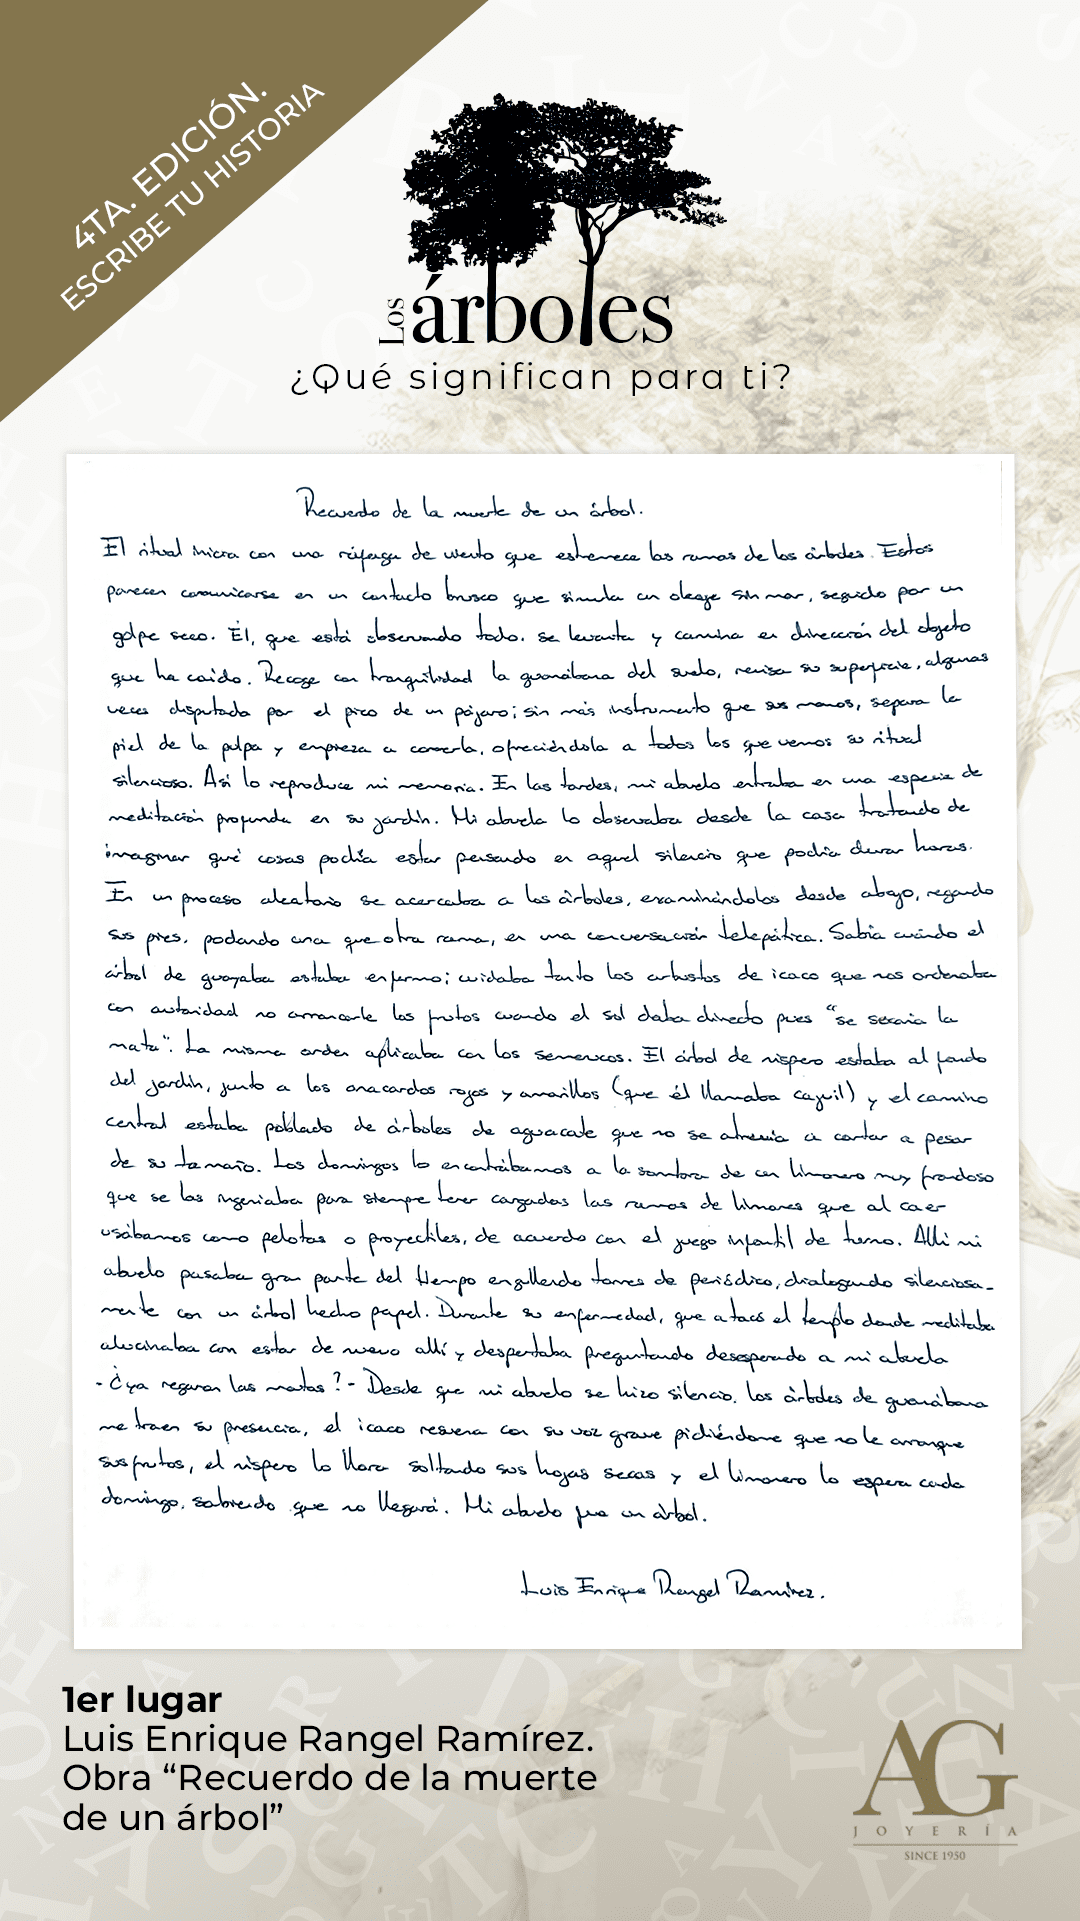 4TA. EDICIÓN.
ESCRIBE TU HISTORIA
Los árboles
¿Qué significan para ti?
Recuerdo de la muerte de un árbol.
El ritual inicia con una ráfaga de viento que estremece las ramas de los árboles. Estos
parecen comunicarse en un contacto brusco que simula un oleaje sin mar, seguido por un
golpe seco. Él, que está observando todo, se levanta y camina en dirección del objeto
que ha caído. Recoge con tranquilidad la guanábana del suelo, revisa su superficie, algunas
veces disputada por el pico de un pájaro; sin más instrumento que sus manos, separa la
piel de la pulpa y empieza a comerla, ofreciéndola a todos los que vemos su ritual
silencioso. Así lo reproduce mi memoria. En las tardes, mi abuelo entraba en una especie de
meditación profunda en su jardín. Mi abuela lo observaba desde la casa tratando de
imaginar qué cosas podía estar pensando en aquel silencio que podía durar horas.
En un proceso aleatorio se acercaba a los árboles, examinándolos desde abajo, regando
sus pies, podando una que otra rama, en una conversación telepática. Sabía cuándo el
árbol de guayaba estaba enfermo; cuidaba tanto los arbustos de icaco que nos ordenaba
con autoridad no arrancarle los frutos cuando el sol daba directo pues "se secaría la
mata". La misma orden aplicaba con los semerucos. El árbol de níspero estaba al fondo
del jardín, junto a los anacardos rojos y amarillos (que él llamaba cajuil) y el camino
central estaba poblado de árboles de aguacate que no se atrevía a cortar a pesar
de su tamaño. Los domingos lo encontrábamos a la sombra de un limonero muy frondoso
que se las ingeniaba para siempre tener cargadas las ramas de limones que al caer
usábamos como pelotas o proyectiles, de acuerdo con el juego infantil de turno. Allí mi
abuelo pasaba gran parte del tiempo engullendo torres de periódico, dialogando silenciosa-
mente con un árbol hecho papel. Durante su enfermedad, que atacó el templo donde meditaba
alucinaba con estar de nuevo allí y despertaba preguntando desesperado a mi abuela
- ¿ya regaron las matas? - Desde que mi abuelo se hizo silencio, los árboles de guanábana
me traen su presencia, el icaco resuena con su voz grave pidiéndome que no le arranque
sus frutos, el níspero lo llora soltando sus hojas secas y el limonero lo espera cada
domingo, sabiendo que no llegará. Mi abuelo fue un árbol.
Luis Enrique Rangel Ramírez.
1er lugar
Luis Enrique Rangel Ramírez.
Obra “Recuerdo de la muerte
de un árbol”
AG
JOYERÍA
SINCE 1950